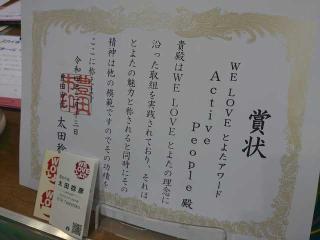 賞状
WE LOVE とよたアワード
Active
People 殿
貴殿はWE LOVE とよたの理念に
沿った取組を実践されており、それは
とよたの魅力と称されると同時にその
精神は他の模範ですのでその功績を
ここに称
令和
三日
太田稔彦
WE LOVE
太田稔彦